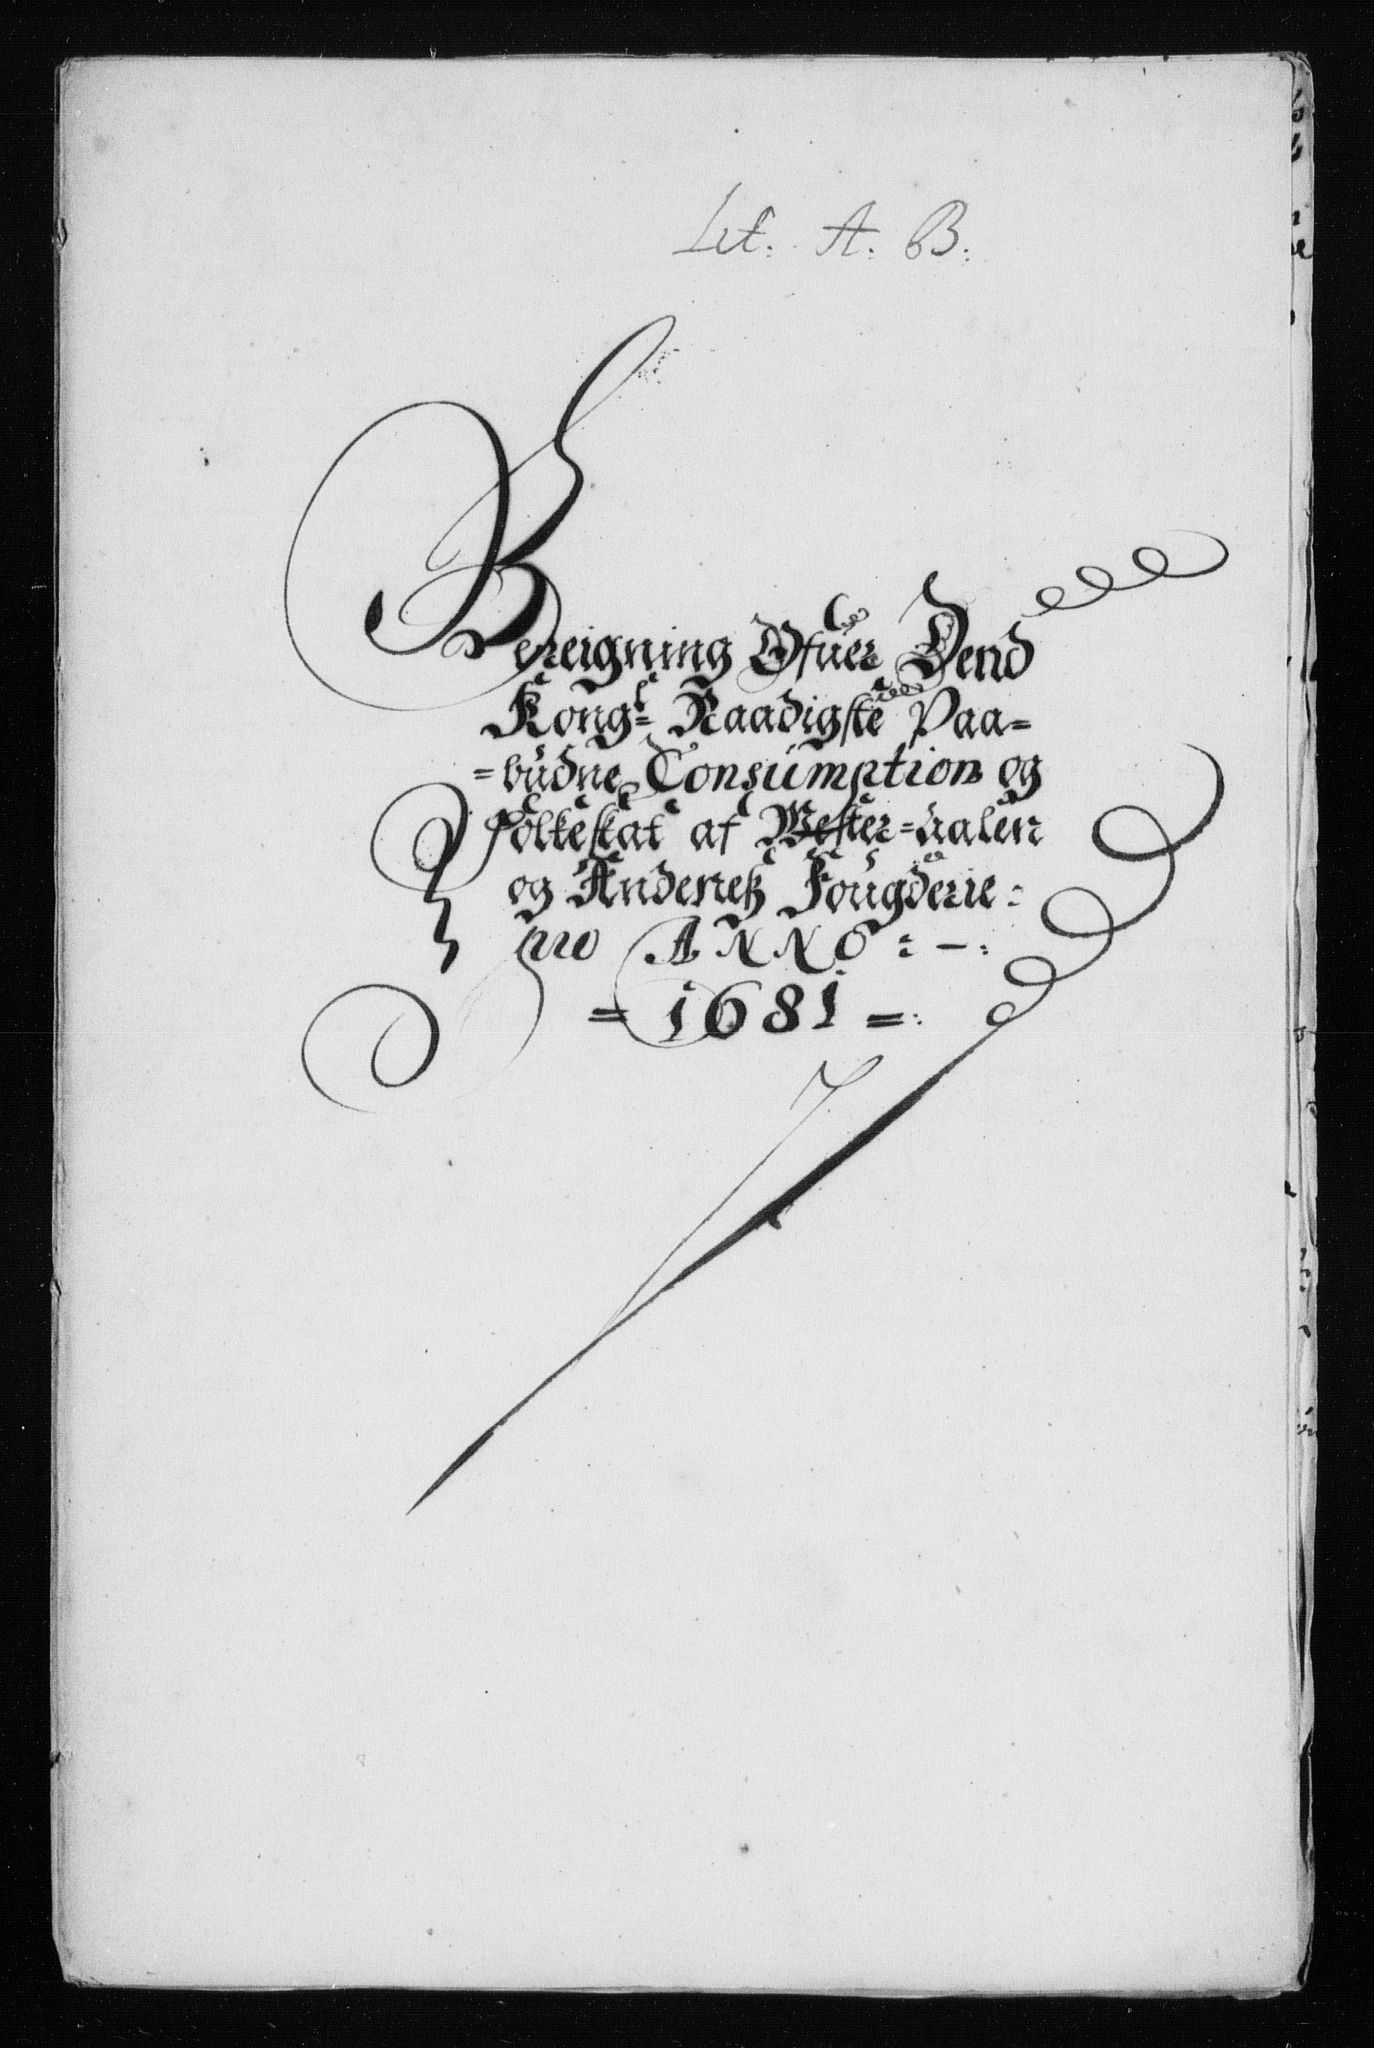 Lit. A. B.
Bereigning Ofuer Dend
Kongl: Naadigste Paa=
=budne Consumption og
Folkeskat af Wester=aalen
og Andeneß Fougderie:
pro ANNO:-:
= 1681 =: